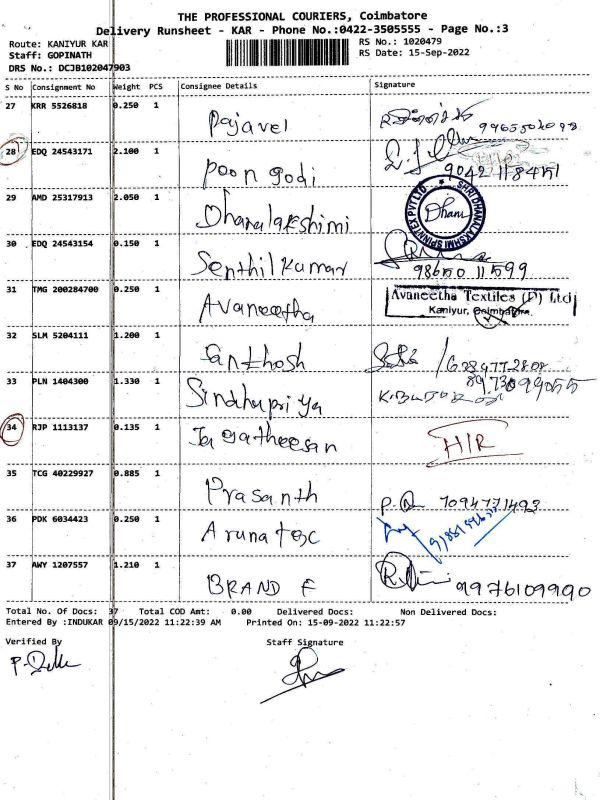 THE PROFESSIONAL COURIERS, Coimbatore
Delivery Runsheet - KAR - Phone No.:0422-3505555 - Page No.:3
Route: KANIYUR KAR RS No.: 1020479
Staff: GOPINATH RS Date: 15-Sep-2022
DRS No.: DCJB102047903
S No Consignment No Weight PCS Consignee Details Signature
27 KRR 5526818 0.250 1 Pajavel
28 EDQ 24543171 2.100 1 Poongodi 9042118451
29 AMD 25317913 2.050 1 Dhanalakshimi SHRI DHANALAKSHMI SPINNTEX PVT LTD Dham
30 EDQ 24543154 0.150 1 Senthil Kumar 98650 11599
31 TMG 200284700 0.250 1 Avaneetha Avaneetha Textiles (P) Ltd
Kaniyur, Coimbatore.
32 SLM 5204111 1.200 1 Santhosh
33 PLN 1404300 1.330 1 Sindhupriya
34 RJP 1113137 0.135 1 Jagatheesan H/R
35 TCG 40229927 0.885 1 Prasanth 7094771493
36 PDK 6034423 0.250 1 Aruna tex
37 AWY 1207557 1.210 1 BRAND F 9976109990
Total No. Of Docs: 37 Total COD Amt: 0.00 Delivered Docs: Non Delivered Docs:
Entered By :INDUKAR 09/15/2022 11:22:39 AM Printed On: 15-09-2022 11:22:57
Verified By Staff Signature